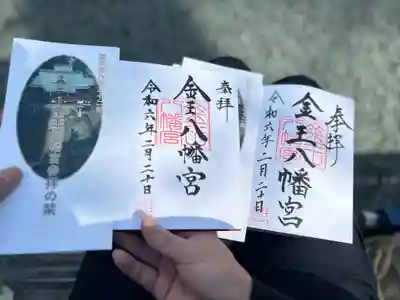 奉拝
金王八幡宮
令和六年二月二十日
奉拝
金王八幡宮
令和六年二月二十日
参拝の栞